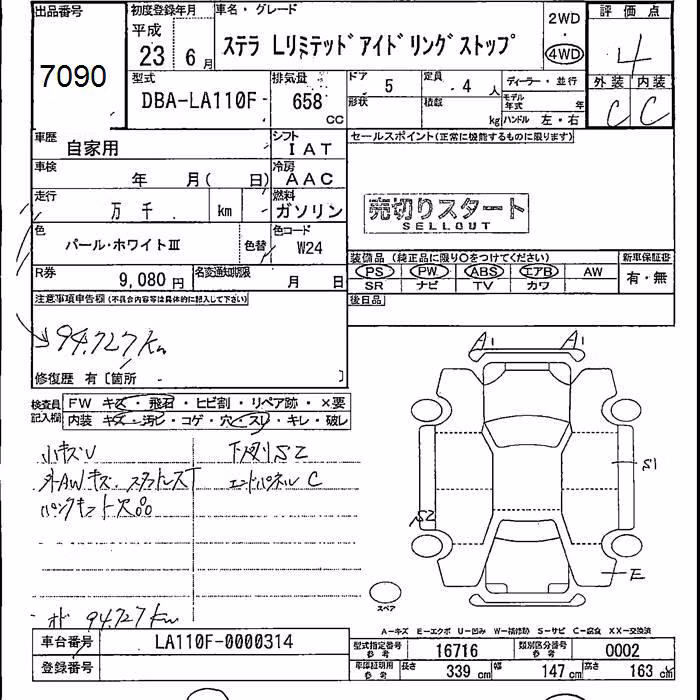 出品番号
7090
初度登録年月
平成
23 6月
車名・グレード
ステラ Lリミテッドアイドリングストップ
2WD
・
4WD
評価点
4
外装 内装
C C
型式
DBA-LA110F
排気量
658
CC
ドア
5
定員
4 人
形状
積載
kg
ディーラー・並行
モデル年式 年
ハンドル 左・右
車歴
自家用
シフト
IAT
セールスポイント(正常に機能するものに限ります)
車検
年 月( 日)
冷房
AAC
走行
万 千 km
燃料
ガソリン
売切りスタート
SELLOUT
色
パール・ホワイトⅢ
色替
色コード
W24
装備品 (純正品に限り○をつけてください)
新車保証書
PS PW ABS エアB AW
SR ナビ TV カワ
有・無
R券
9,080円
名変通知期限
月 日
後日品
注意事項申告欄(不具合内容等は具体的に記入して下さい)
94,727km
修復歴 有 [箇所 ]
検査員
記入欄
FW キズ・飛石・ヒビ割・リペア跡・×要
内装 キズ・汚レ・コゲ・穴・スレ・キレ・破レ
小キズU
下廻りS2
外AWキズ スタットレスT
エンドパネルC
パンクキット欠品
A1 A1
S1
S2
E
スペア
94,727km
A－キズ E－エクボ U－凹み W－補修跡 S－サビ C－腐食 XX－交換済
車台番号
LA110F-0000314
登録番号
型式指定番号
参考
16716
類別区分番号
参考
0002
車庫証明用
参考
長さ
339 cm
幅
147 cm
高さ
163 cm